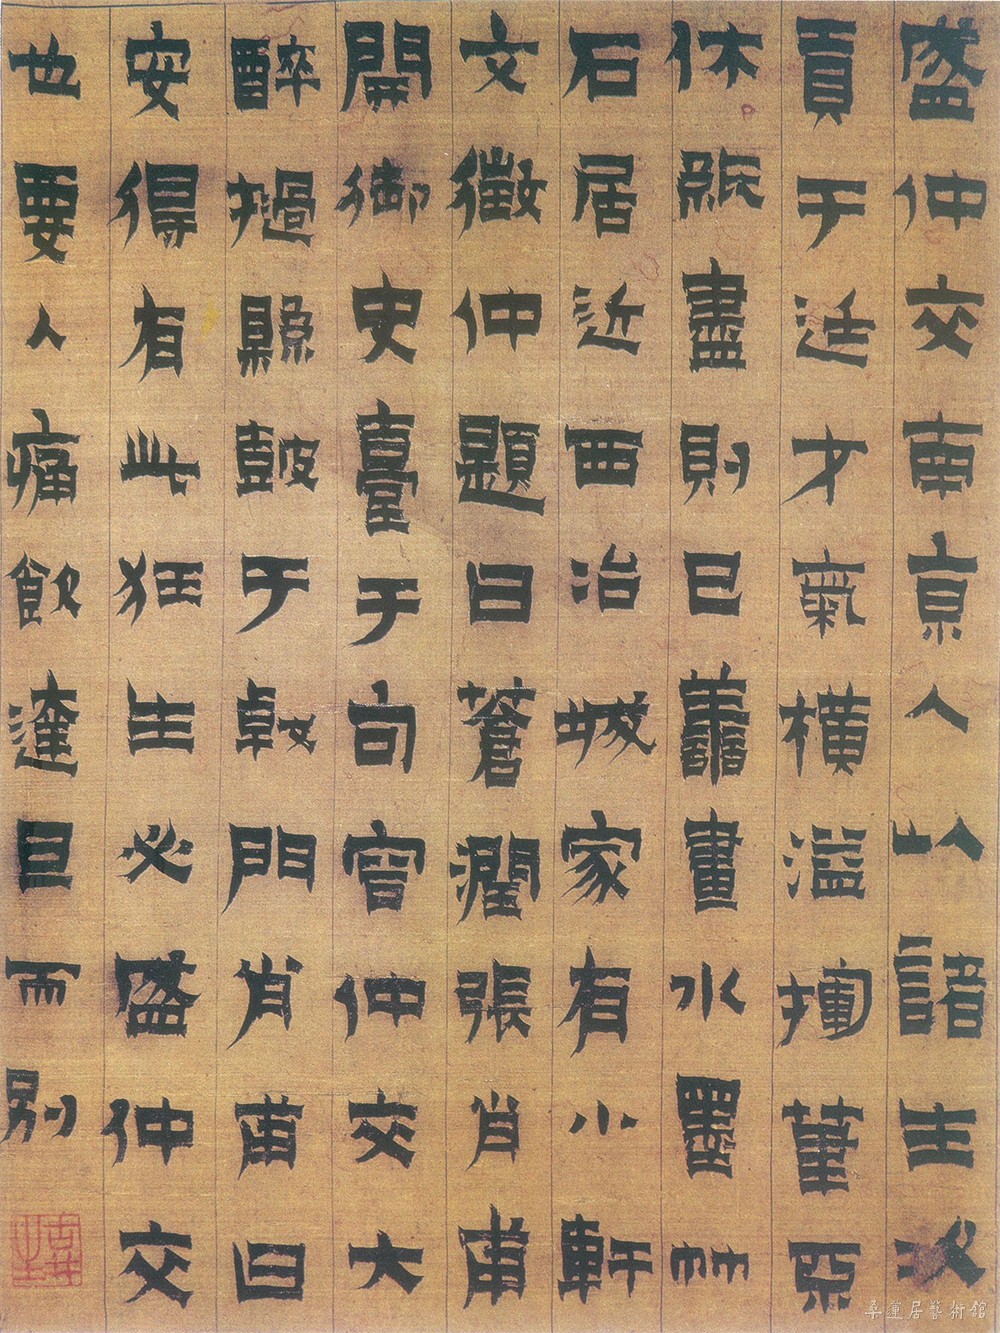 盛仲交南京人以諸生次
貢于廷才氣橫溢揮筆
休紙盡則已善畫水墨竹
石居近西冶城家有小軒
文徵仲題曰蒼潤張肖甫
開御史臺于句容仲交大
醉撾縣鼓于戟門肖甫曰
安得有此狂生必盛仲交
也要入痛飲達旦而別
桑蓮居藝術館